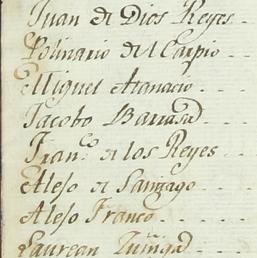 Juan de Dios Reyes
Polinario del Carpio
Miguel Atanacio
Jacobo Barrasa
Franco. de los Reyes
Alejo de Santiago
Alejo Franco
Laurean Zuñiga